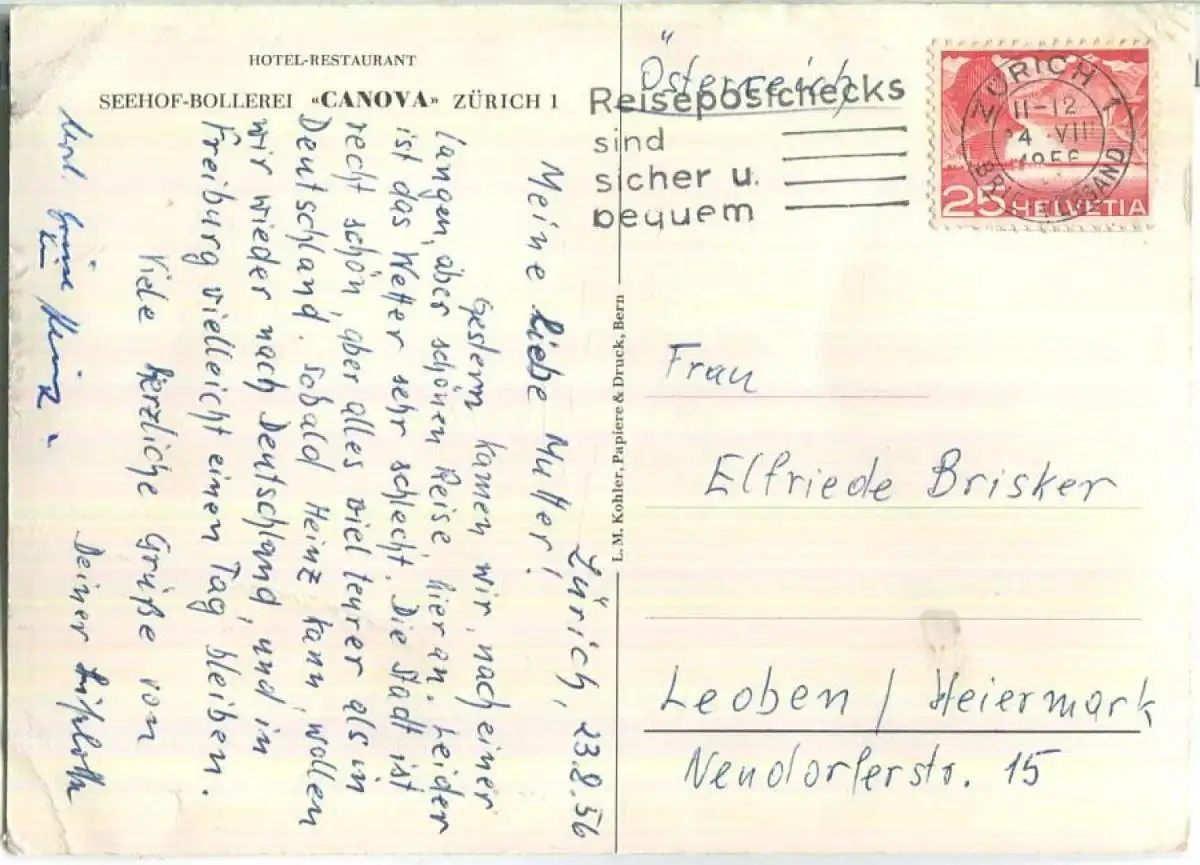 HOTEL-RESTAURANT
SEEHOF-BOLLEREI «CANOVA» ZÜRICH 1
Zürich, 23.8.56
Meine liebe Mutter!
Gestern kamen wir, nach einer
langen, aber schönen Reise, hier an. Leider
ist das Wetter sehr schlecht. Die Stadt ist
recht schön, aber alles viel teurer als in
Deutschland. Sobald Heinz kann, wollen
wir wieder nach Deutschland, und in
Freiburg vielleicht einen Tag bleiben.
Viele herzliche Grüße von
Deiner
L.M. Kohler, Papiere & Druck, Bern
Österreich
Reisepostchecks
sind
sicher u.
bequem
ZÜRICH 1
11-12
4 VIII
1956
BRIEFVERSAND
25 HELVETIA
Frau
Elfriede Brisker
Leoben / Steiermark
Nendorferstr. 15